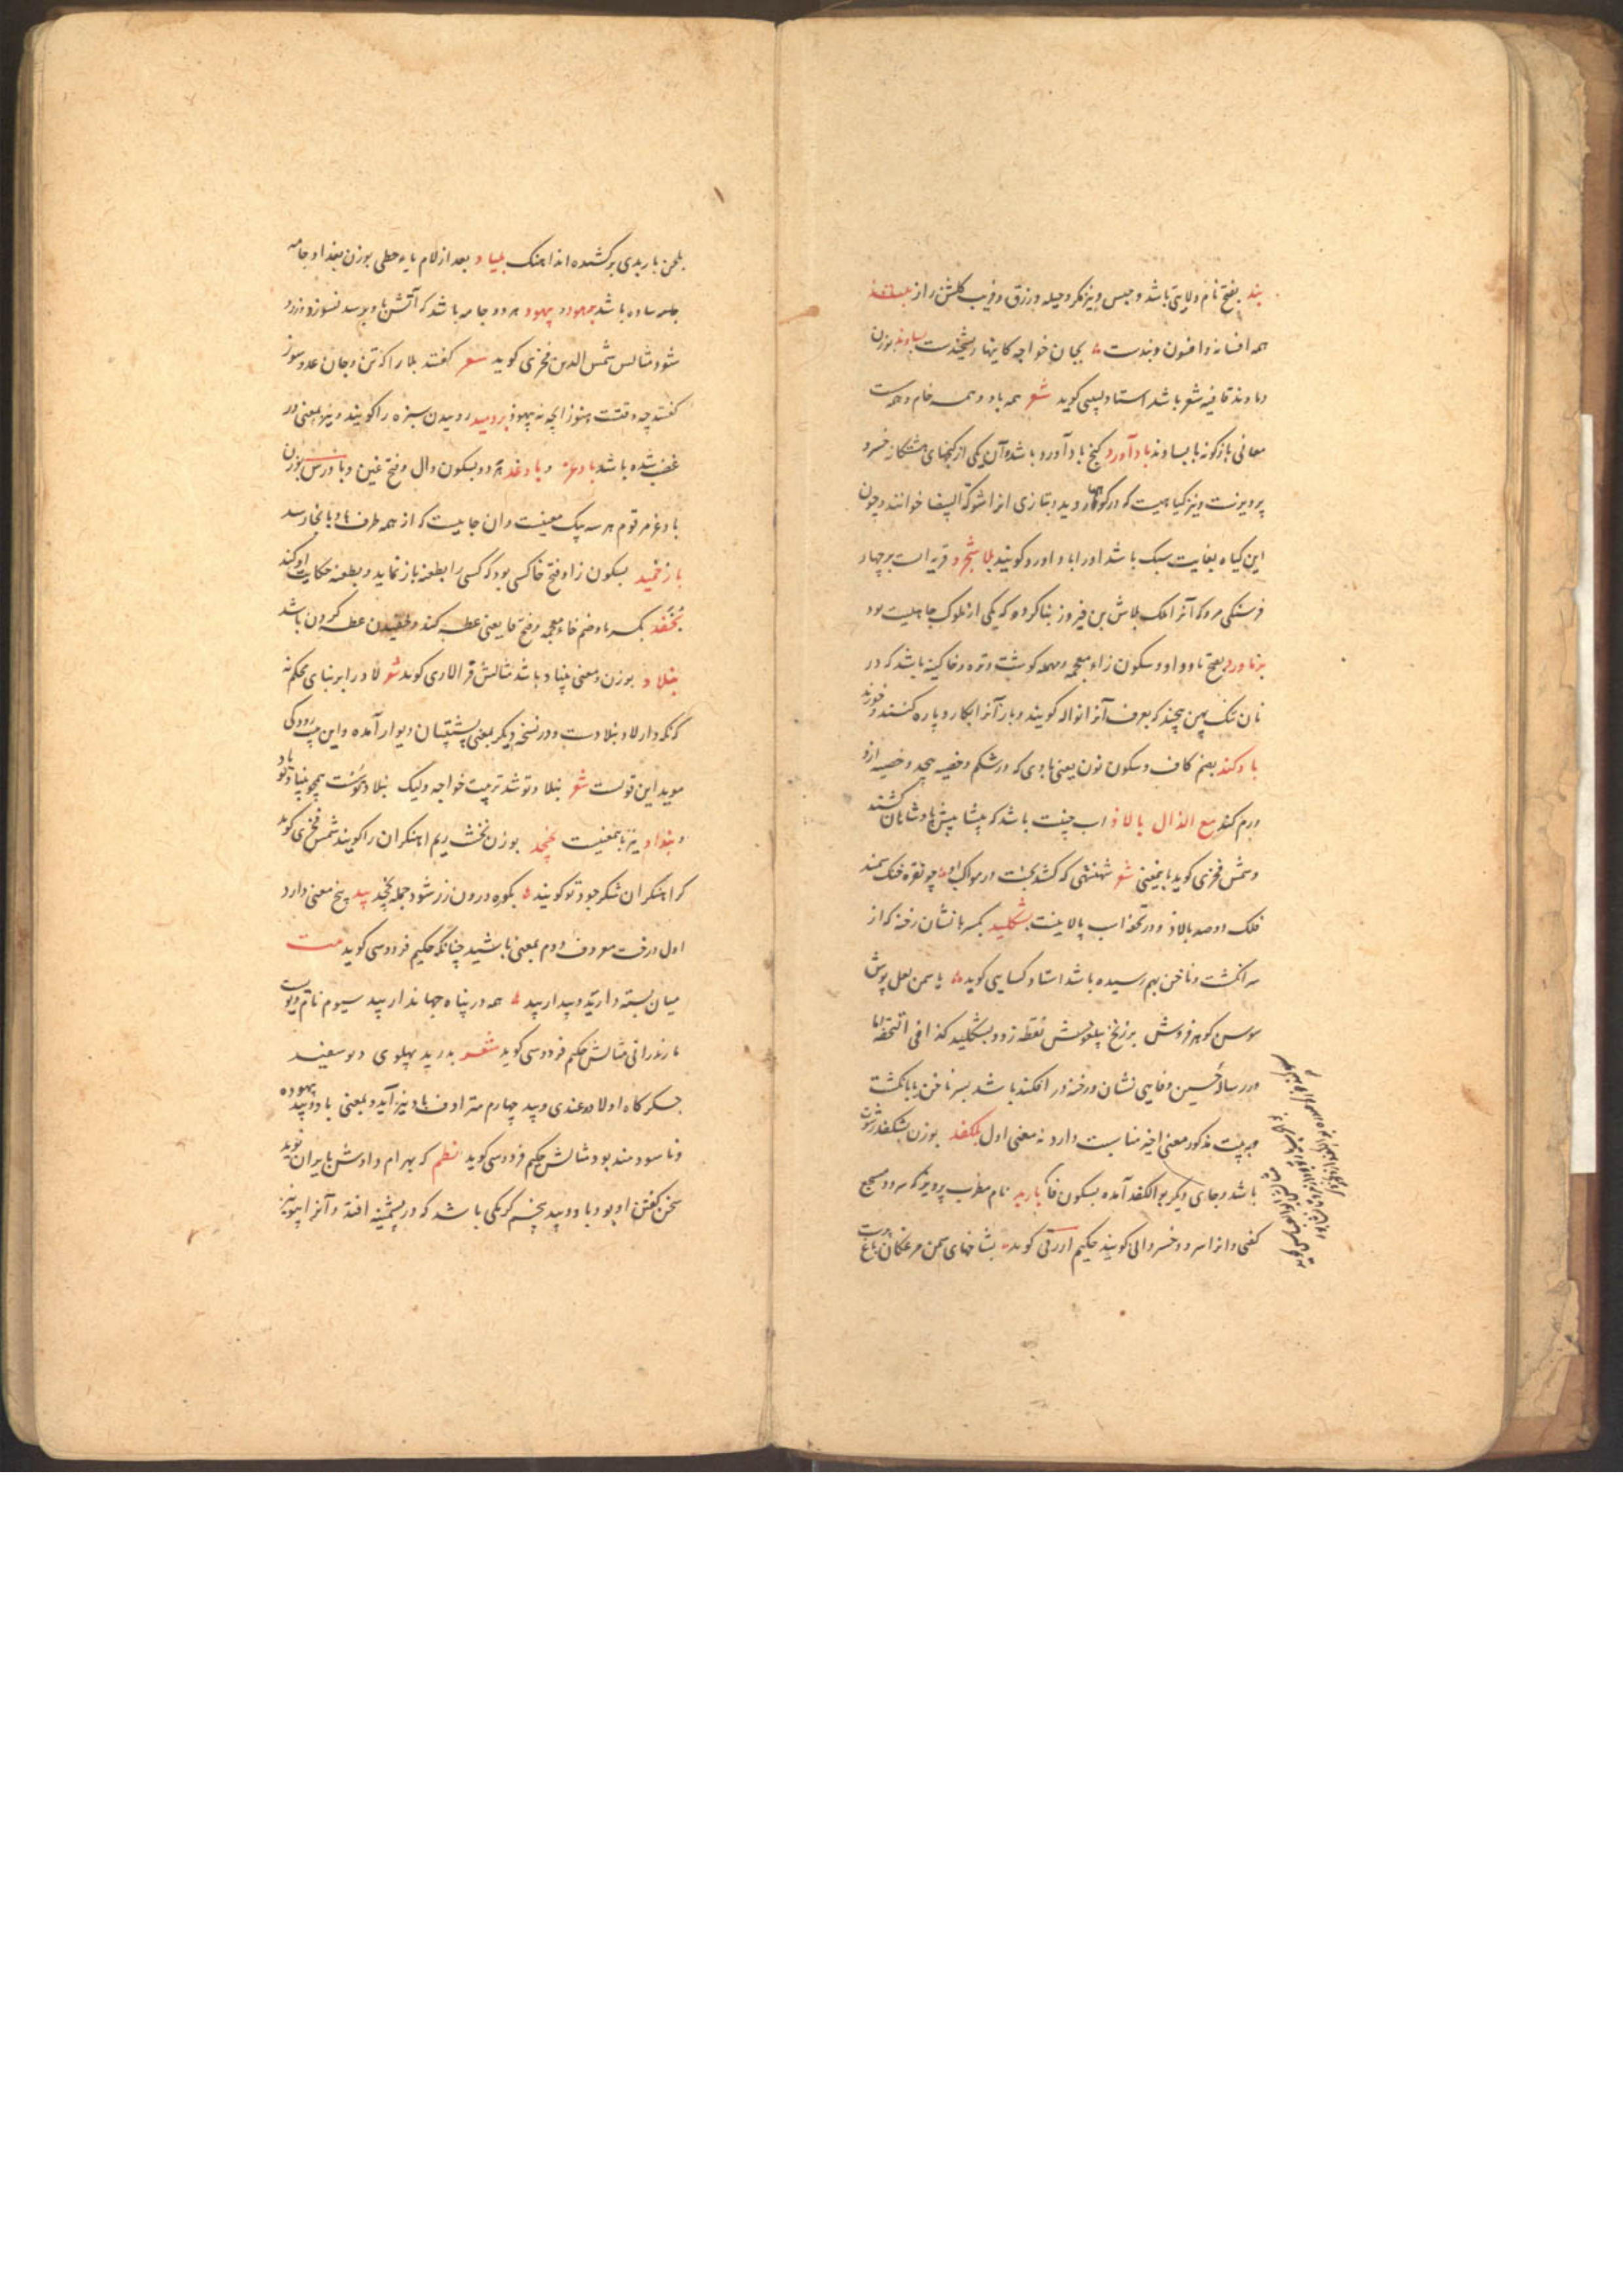 بند بفتح نام ولایتی باشد و حبس و نیز مکر و حیله و زرق و فریب کلشن راز
همه افسانه و افسون و بندست بجان خواجه کاینها ریشخندست بساوند بوزن
دماوند قافیه شعر باشد استاد لبیبی کوید شعر همه باد و همه خام و همه سست
معانی بازکونه با بساوند بادآورد کنج بادآورد باشد و آن یکی از کنجهای هشتکانه خسرو
پرویزست و نیز کیاهیست که در کوهها روید و بتازی انرا شوکة البیضا خوانند و چون
این کیاه بغایت سبک باشد اورا باد اورد کویند بلاشجرد قریه است بر چهار
فرسنکی مرو که آنرا ملک بلاش بن فیروز بنا کرده که یکی از ملوک جاهلیت بود
بزماورد بفتح با و واو و سکون زاء معجمه و مهمله کوشت و تره و خاکینه باشد که در
نان تنک پهن پیچند که بعرف آنرا نواله کویند و باز آنرا بکارد پاره کنند و خورند
بادکند بضم کاف و سکون نون یعنی بادی که در شکم و خصیه پیچد و خصیه ازو
ورم کند مع الذال بالاذ اسب جنیبت باشد که پیشاپیش پادشاهان کشند
و شمس فخری کوید بایمعنی شعر شهنشهی که کشد بخت در مواکب او چو نقره خنک سمند
فلک دوصد بالاذ و در تحفه اسب پالانیست بشکلید بکسر با نشان رخنه که از
سر انکشت و ناخن بهم رسیده باشد استاد کسایی کوید یاسمن لعل پوش
سوسن کوهر فروش بر زنخ پیلغوش نقطه زد و بشکلید کذا فی التحفه اما
در رساله حسین وفایی نشان و رخنه در افکند باشد بسر ناخن یا بانکشت
و بیت مذکور معنی اخیر مناسبت دارد نه معنی اول بلکفد بوزن بشکفد رشوت
باشد و جای دیکر بوالکفد آمده بسکون فا باربد نام مطرب پرویز که سرود مسجع
کفتی و انرا سرود خسروانی کویند حکیم ازرقی کوید بشاخهای سمن مرغکان باغ پرست
بلحن باربدی برکشیده اند اهنک بلیاد بعد از لام یاء حطی بوزن بغداد جامه
جامه ساده باشد بهمود و بیهود هر دو جامه باشد که آتش باو برسد نسوزد و زرد
شود مثالش شمس الدین فخری کوید شعر کفتند بلا را که تن و جان عدو سوز
کفتند چه وقتست هنوز انچه نه بیهود بردمید رو ییدن سبزه را کویند و نیز بمعنی در
غضب شده باشد بادغر و بادغد هر دو بسکون دال و فتح غین و بادرس بوزن
بادغر مرقوم هر سه بیک معنیست و ان جاییست که از همه طرف باد بانجا رسد
بازخمید بسکون زا و فتح خا کسی بود که کسی را بطعنه باز نماید و بطعنه حکایت او کند
بخفد بکسر با و ضم خاء معجمه و فتح فا یعنی عطسه کند و خفیدن عطسه کردن باشد
بنلاد بوزن و معنی بنیاد باشد مثالش فرالاوی کوید شعر لاد را بر بنای محکم نه
که نکه دار لاد بنلادست و در نسخه دیکر بمعنی پشتیبان دیوار آمده و این بیت رودکی
موید این قولست شعر بنلاد تو شد تربیت خواجه ولیک بنلاد تو سست همچو بنیاد تو باد
و بنداد نیز باینمعنیست بخجد بوزن نخشب ریم اهنکران را کویند شمس فخری کوید
کر اهنکران شکر جود تو کویند بکوره درون زر شود جمله بخجد بید پنج معنی دارد
اول درخت معروف دوم بمعنی باشید چنانکه حکیم فردوسی کوید بیت
میان بسته دارید و بیدار بید همه در پناه جهاندار بید سیوم نام دیویست
مازندرانی مثالش حکیم فردوسی کوید شعر بدرید پهلوی دیو سفید
جکرکاه اولاد و غندی و بید چهارم مترادف باد نیز آید و بمعنی باد و بید بیهوده
و ناسودمند بود مثالش حکیم فردوسی کوید نظم که بهرام دادش بایران نوید
سخن کفتن او بود باد و بید پنجم کرمکی باشد که در پشمینه افتد و آنرا بیو نیز